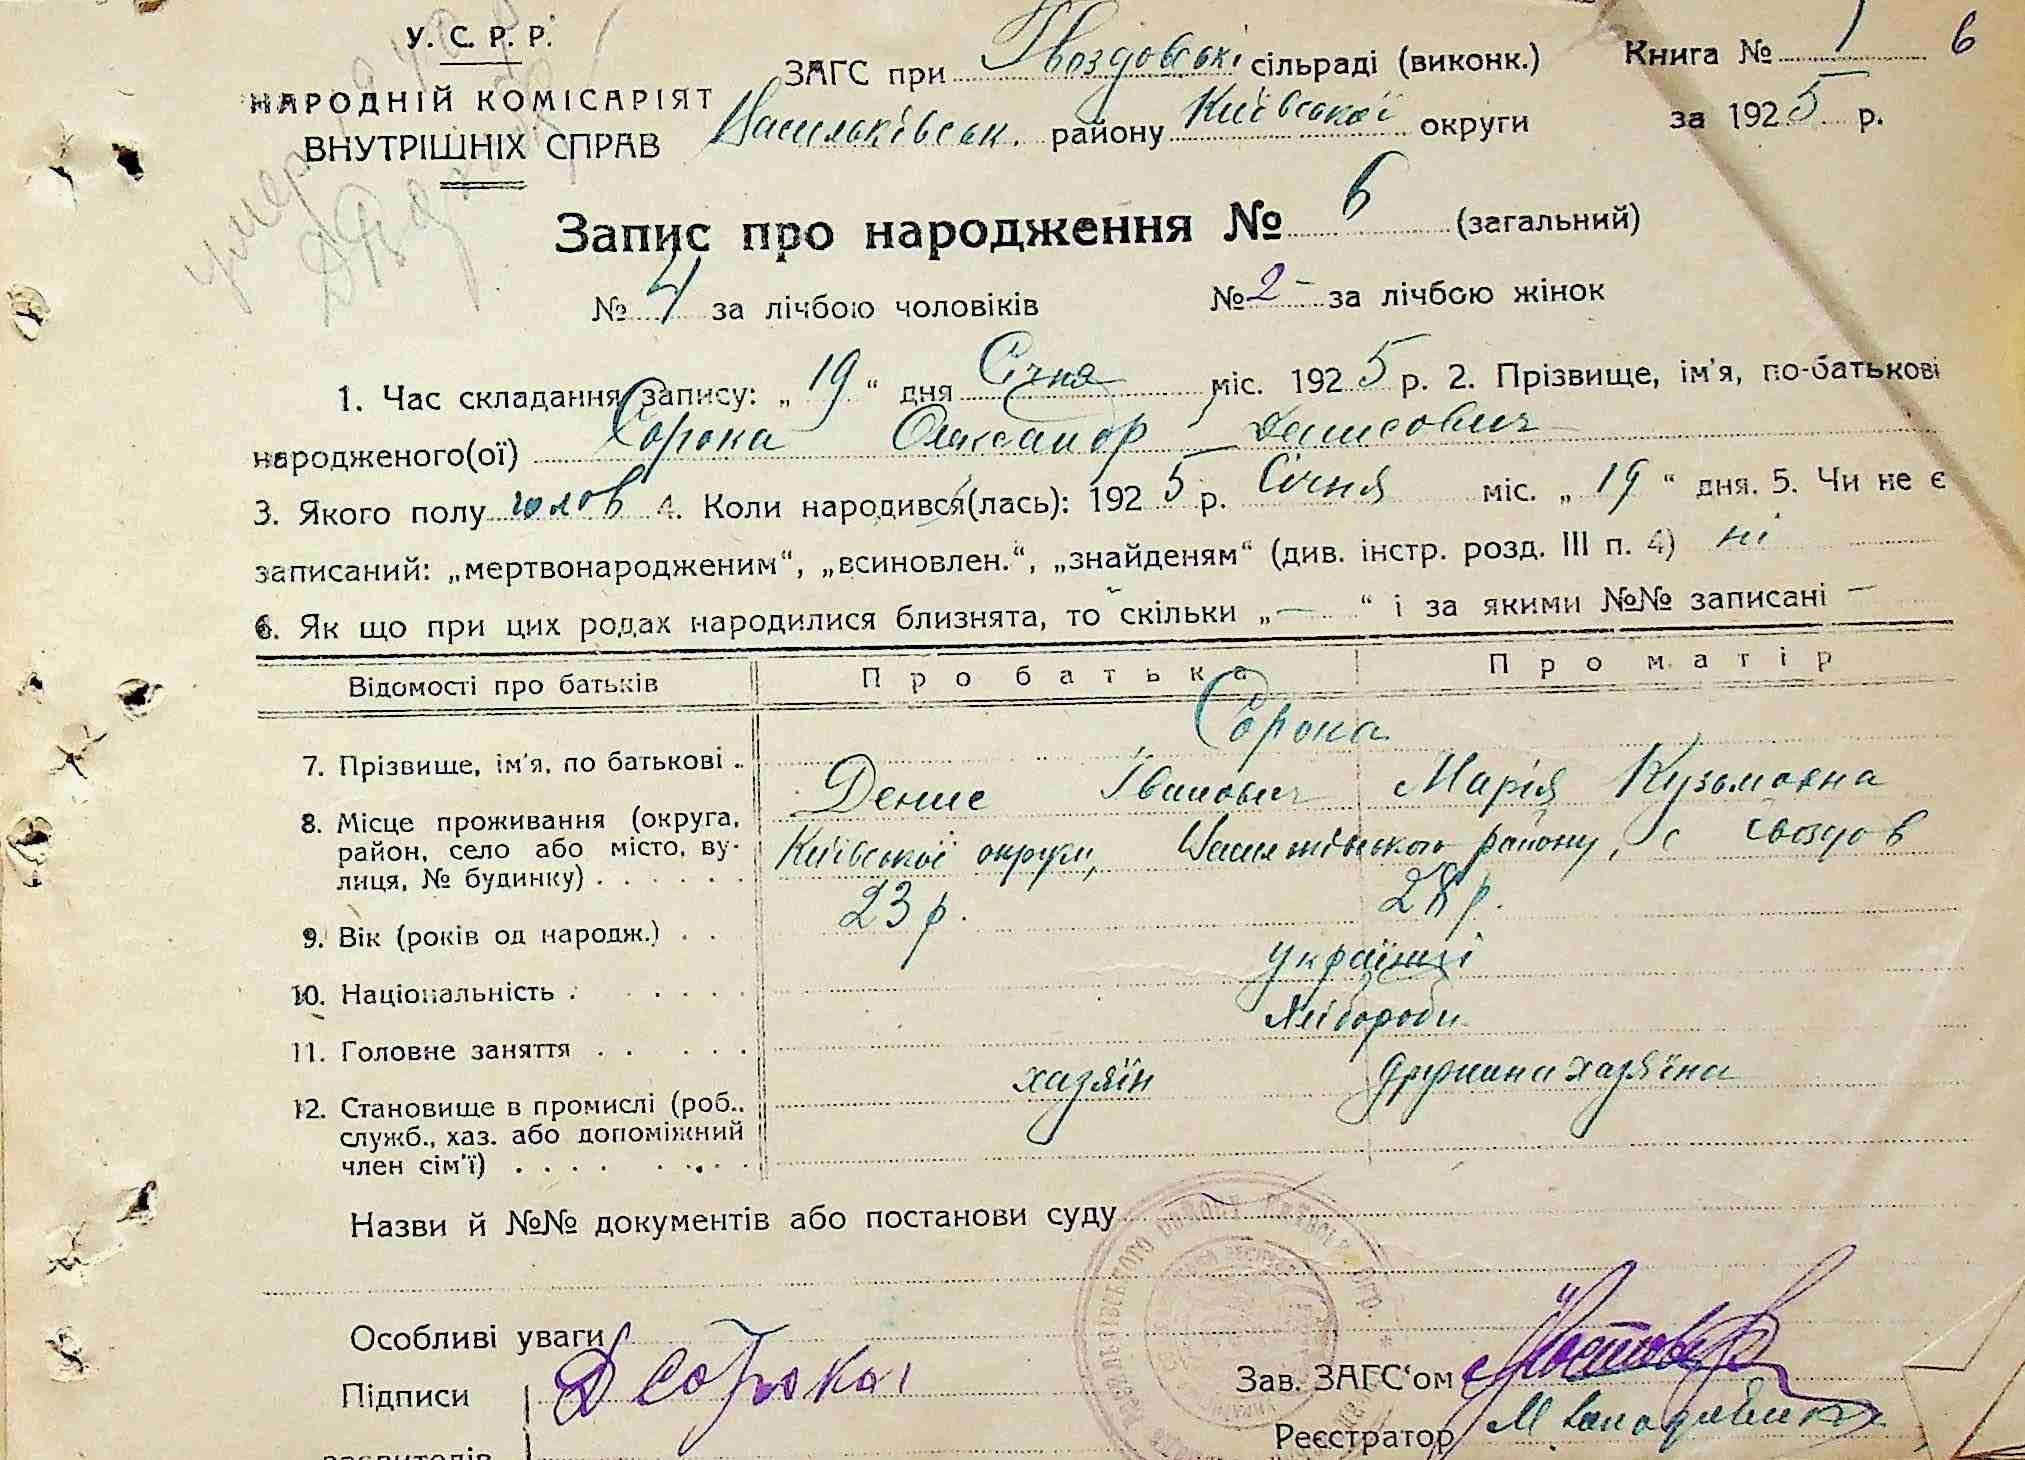 У. С. Р. Р.
НАРОДНІЙ КОМІСАРІЯТ
ВНУТРІШНІХ СПРАВ
ЗАГС при Гвоздовські сільраді (виконк.)
Васильківськ. району Київської округи
Книга № 1 6
за 1925 р.
Запис про народження № 6 (загальний)
№ 4 за лічбою чоловіків № 2 - за лічбою жінок
1. Час складання запису: „19“ дня Січня міс. 1925 р. 2. Прізвище, ім'я, по-батькові
народженого(ої) Сорока Олександр Денисович
3. Якого полу чолов 4. Коли народився(лась): 1925 р. Січня міс. „19“ дня. 5. Чи не є
записаний: „мертвонародженим“, „всиновлен.“, „знайденям“ (див. інстр. розд. III п. 4) ні
6. Як що при цих родах народилися близнята, то скільки „—“ і за якими №№ записані —
Відомості про батьків Про батька Про матір
Сорока
7. Прізвище, ім'я, по батькові . Денис Іванович Марія Кузьмовна
8. Місце проживання (округа, район, село або місто, ву-
лиця, № будинку) . . . . . . Київської округи, Васильківського району, с Гвоздов
9. Вік (років од народж.) . . 23 р. 28 р.
10. Національність . . . . . . українці
11. Головне заняття . . . . . . Хлібороби
12. Становище в промислі (роб., хазяїн дружина хазяїна
служб., хаз. або допоміжний
член сім'ї) . . . . . . . .
Назви й №№ документів або постанови суду
Особливі уваги
Підписи Д Сорока
Зав. ЗАГС'ом
Реєстратор